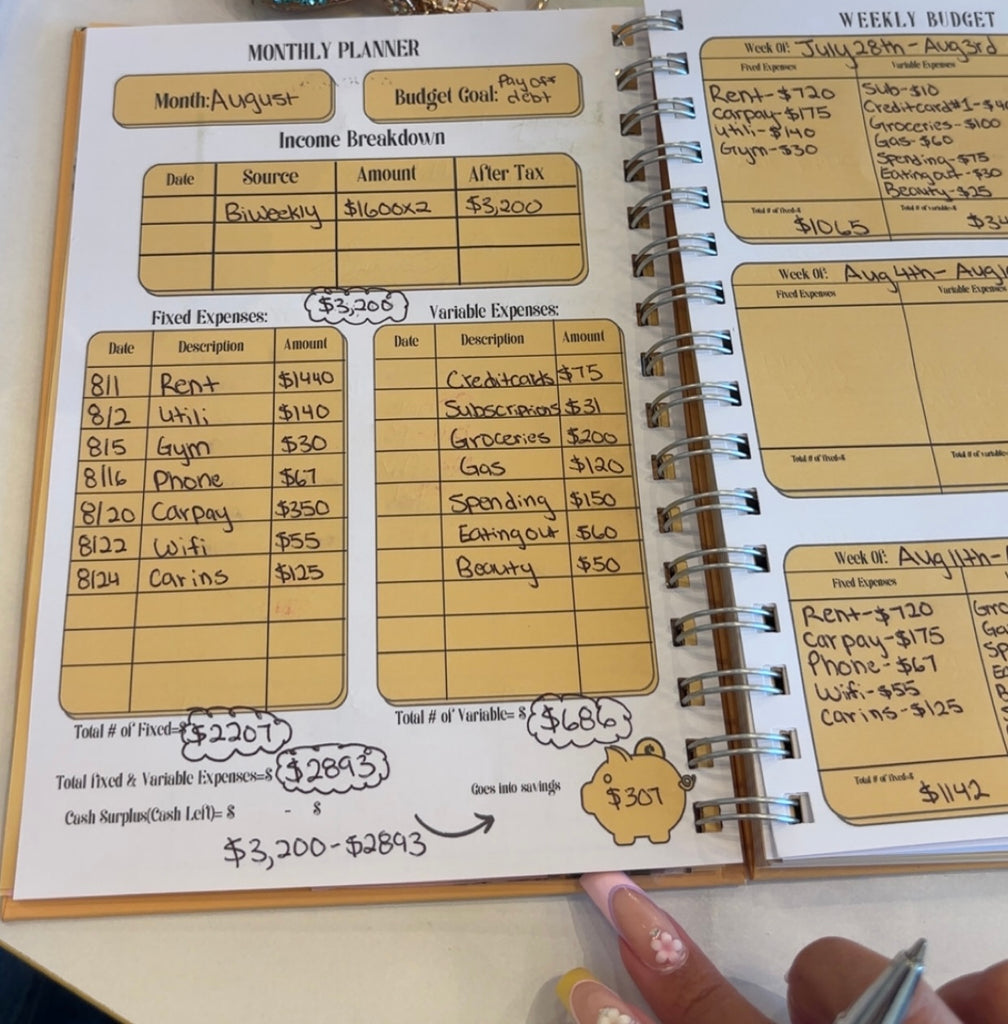 MONTHLY PLANNER
Month: August
Budget Goal: Pay off debt
Income Breakdown
Date Source Amount After Tax
Biweekly $1600x2 $3,200
$3,200
Fixed Expenses:
Date Description Amount
8/1 Rent $1440
8/2 Utili $140
8/5 Gym $30
8/16 Phone $67
8/20 Carpay $350
8/22 Wifi $55
8/24 Car ins $125
Total # of Fixed=$ $2207
Variable Expenses:
Date Description Amount
Creditcards $75
Subscriptions $31
Groceries $200
Gas $120
Spending $150
Eating out $60
Beauty $50
Total # of Variable= $ $686
Total fixed & Variable Expenses=$ $2893
Cash Surplus(Cash Left)= $ - $
$3,200-$2893
Goes into savings
$307
WEEKLY BUDGET
Week Of: July 28th - Aug 3rd
Fixed Expenses
Rent-$720
Carpay-$175
Utili-$140
Gym-$30
Total # of fixed=$
$1065
Variable Expenses
Sub-$10
Credit card #1-$
Groceries-$100
Gas-$60
Spending-$75
Eating out-$30
Beauty-$25
Total # of variable=$
$34
Week Of: Aug 4th-
Fixed Expenses
Variable Expenses
Total # of fixed=$
Total # of variable=
Week Of: Aug 11th-
Fixed Expenses
Rent-$720
Car pay-$175
Phone-$67
Wifi-$55
Car ins-$125
Total # of fixed=$
$1142